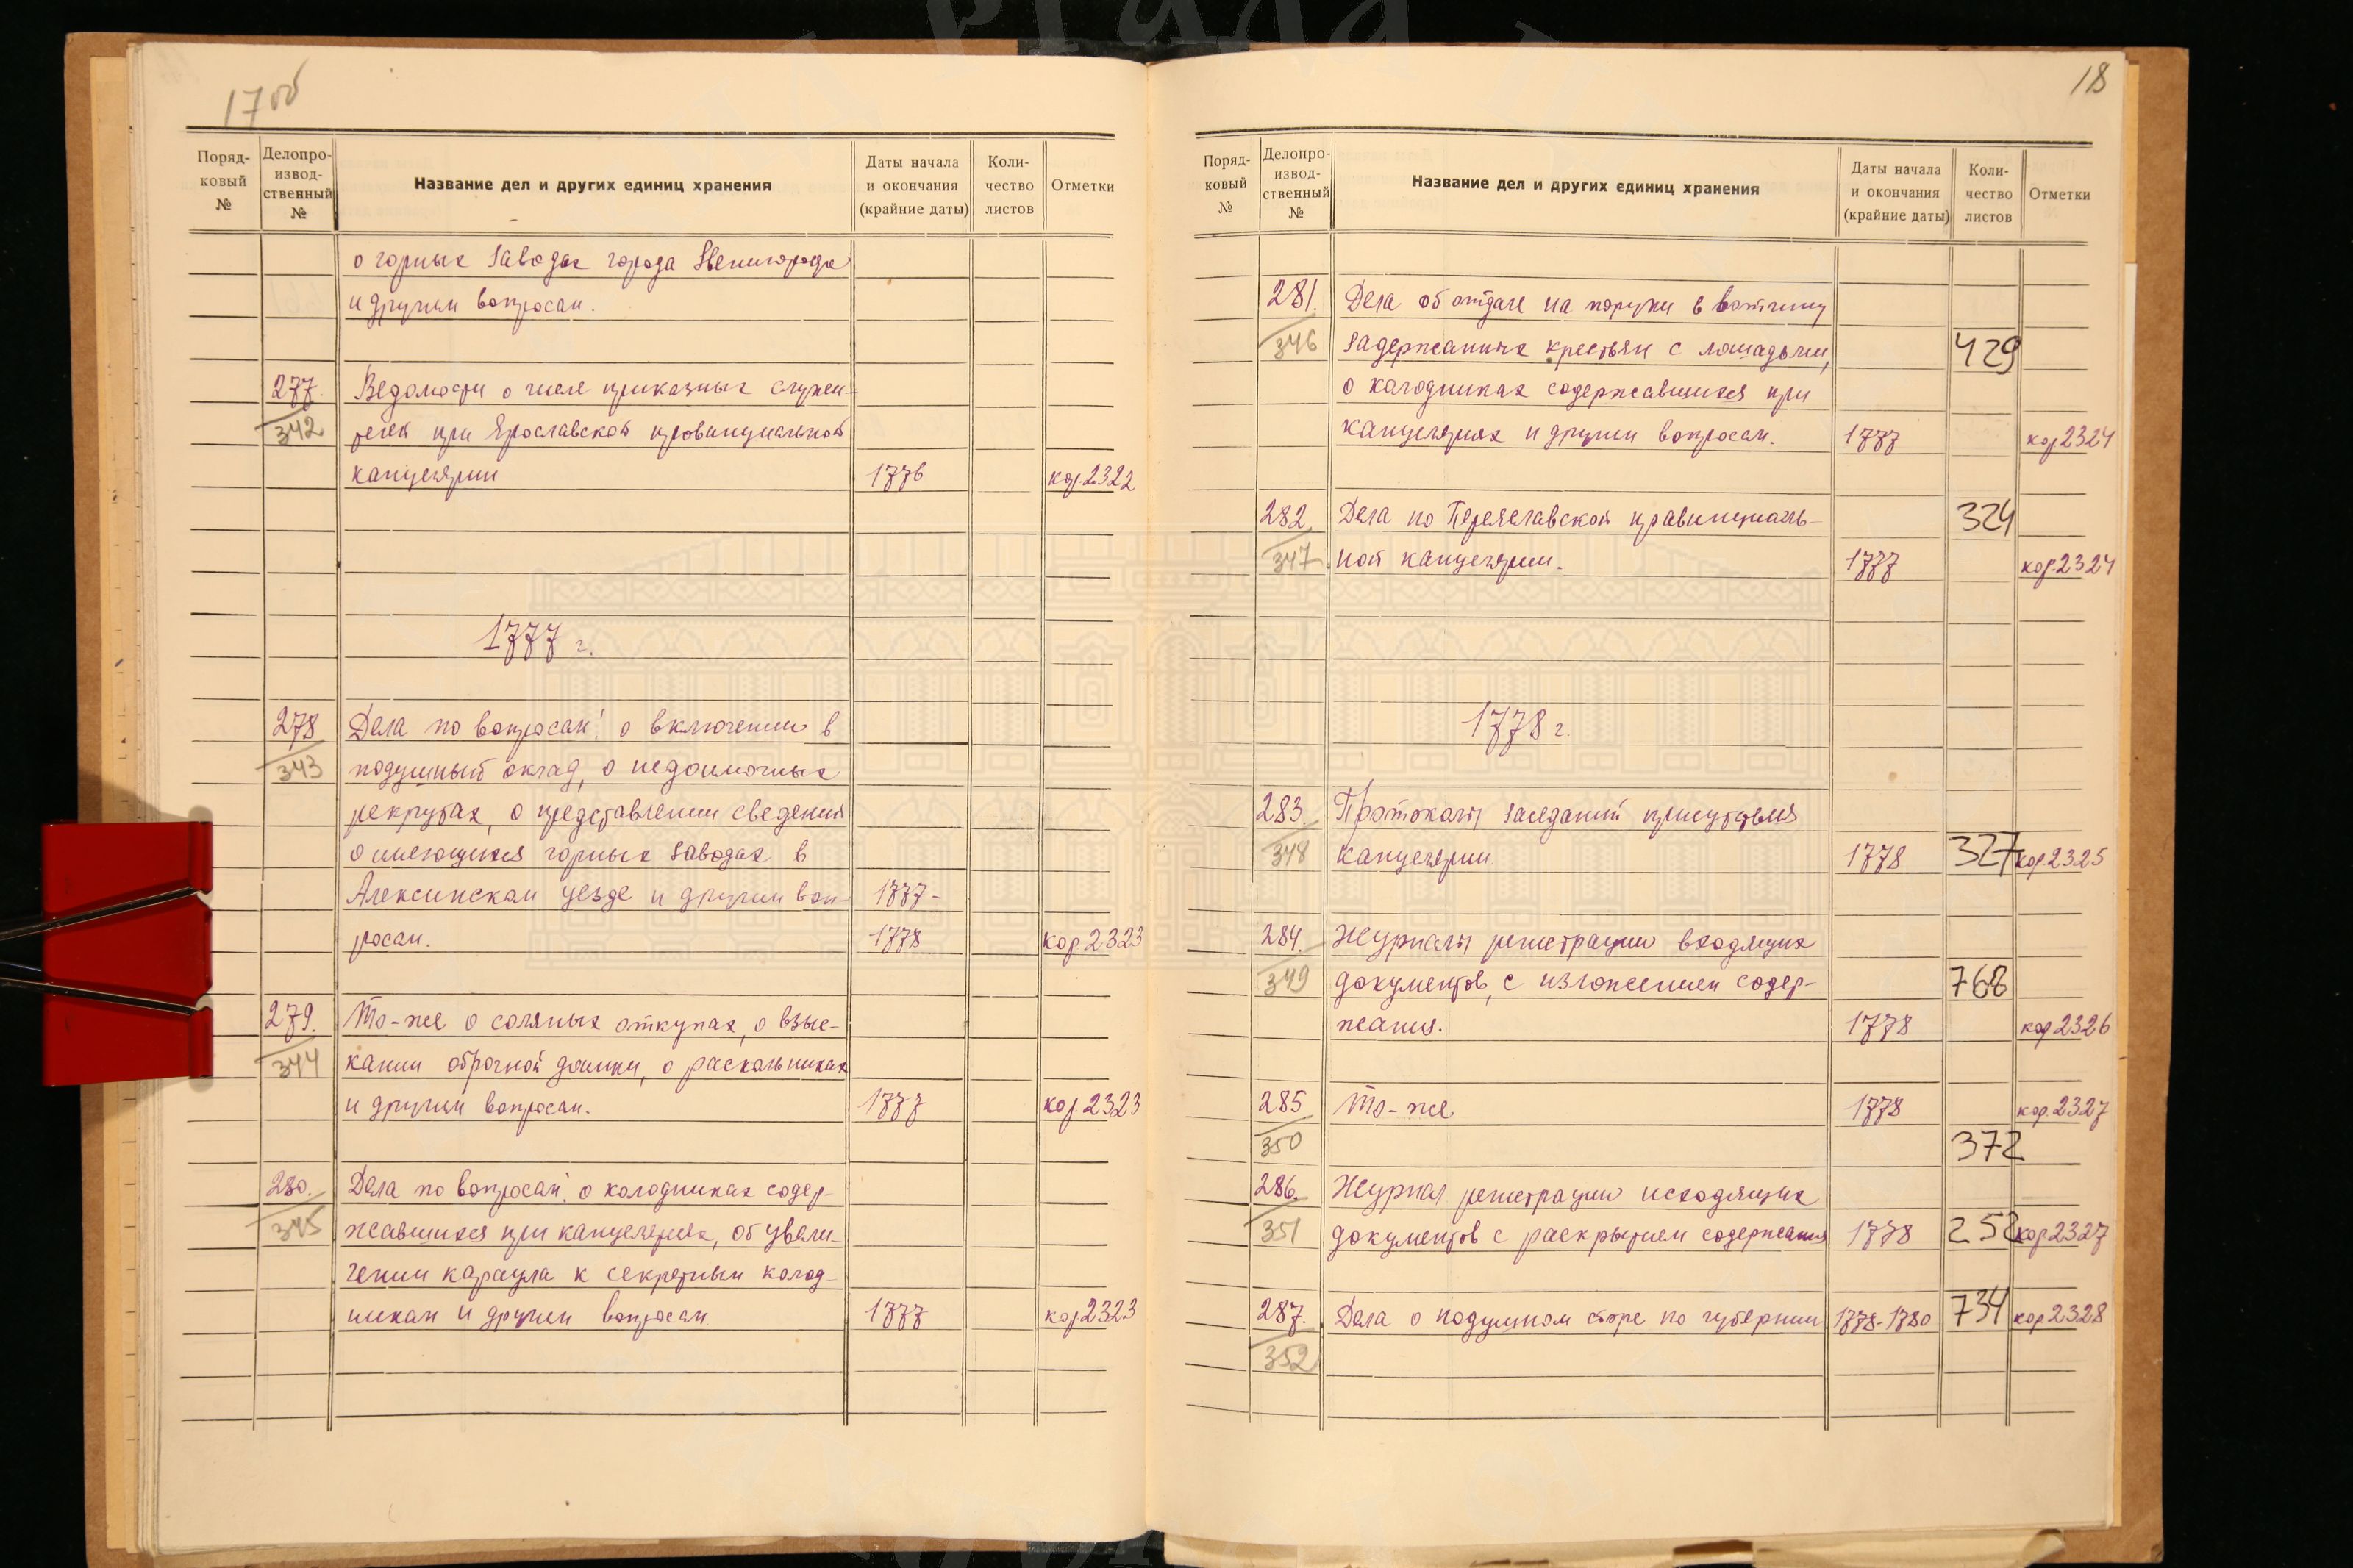 17 об
Поряд-
ковый
№
Делопро-
извод-
ственный
№
Название дел и других единиц хранения
Даты начала
и окончания
(крайние даты)
Коли-
чество
листов
Отметки
о горных заводах города Звенигорода
и другим вопросам.
277. Ведомости о числе приказных служи-
342 телей при Ярославской провинциальной
канцелярии 1776 кор. 2322
1777 г.
278 Дела по вопросам: о включении в
343 подушный оклад, о недоимочных
рекрутах, о представлении сведений
о имеющихся горных заводах в
Алексинском уезде и другим воп- 1777-
росам. 1778 кор 2323
279. То-же о соляных откупах, о взыс-
344 кании оброчной доимки, о раскольниках
и другим вопросам. 1777 кор. 2323
280. Дела по вопросам: о колодниках содер-
345 жавшихся при канцеляриях, об увели-
чении караула к секретным колод-
никам и другим вопросам. 1777 кор 2323
18
Поряд-
ковый
№
Делопро-
извод-
ственный
№
Название дел и других единиц хранения
Даты начала
и окончания
(крайние даты)
Коли-
чество
листов
Отметки
281. Дела об отдаче на поруки в вотчину
346 задержанных крестьян с лошадьми, 429
о колодниках содержавшихся при
канцеляриях и другим вопросам. 1777 кор 2324
282. Дела по Переяславской правинциаль- 324
347 ной канцелярии. 1777 кор. 2324
1778 г.
283. Протоколы заседаний присутствия
348 канцелярии. 1778 327 кор 2325
284. Журналы регистрации входящих
349 документов, с изложением содер- 768
жания. 1778 кор 2326
285 То-же 1778 кор. 2327
350 372
286. Журнал регистрации исходящих
351 документов с раскрытием содержания 1778 252 кор 2327
287. Дела о подушном сборе по губернии 1778-1780 734 кор 2328
352